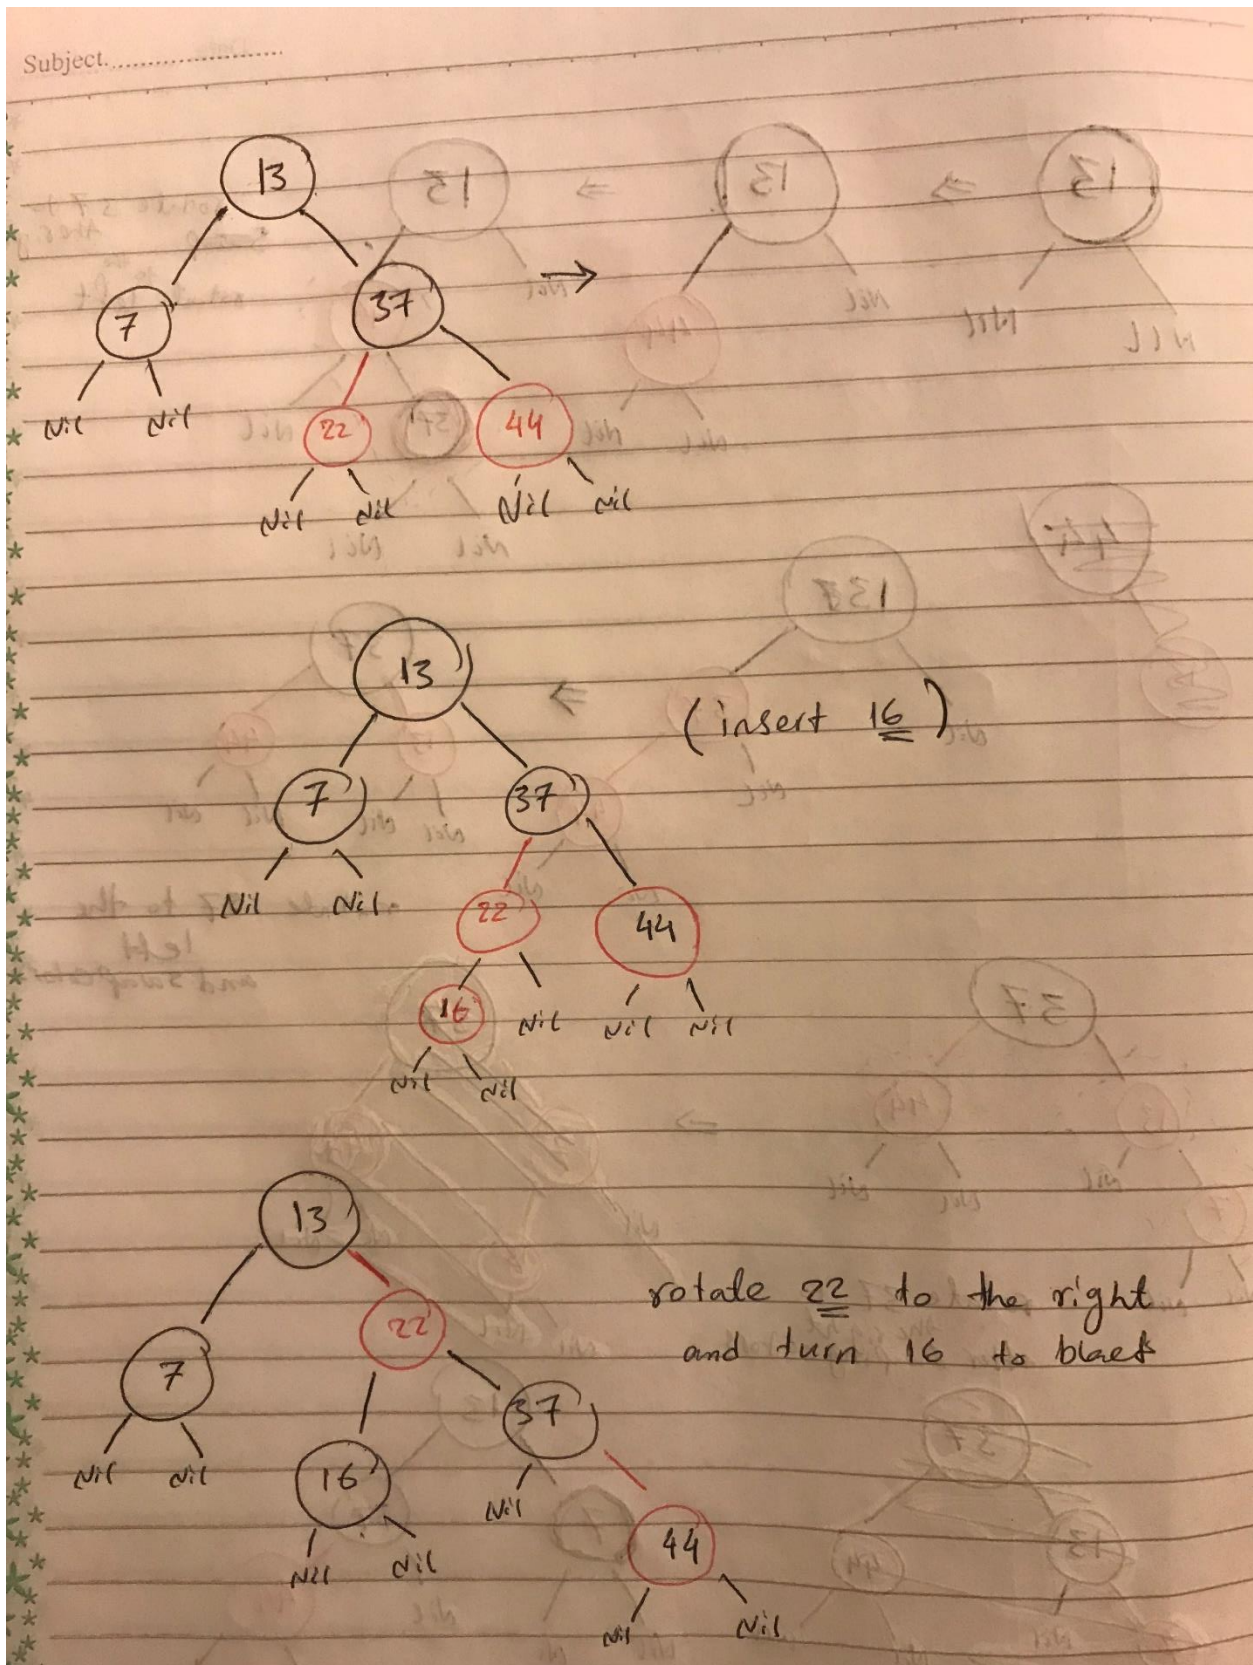 Subject
13
7
37
Nil Nil
22
44
Nil Nil Nil Nil
13
(insert 16)
7
37
Nil Nil
22
44
16
Nil Nil Nil
Nil Nil
13
rotate 22 to the right
22
and turn 16 to black
7
37
Nil Nil
16
Nil
44
Nil Nil
Nil Nil